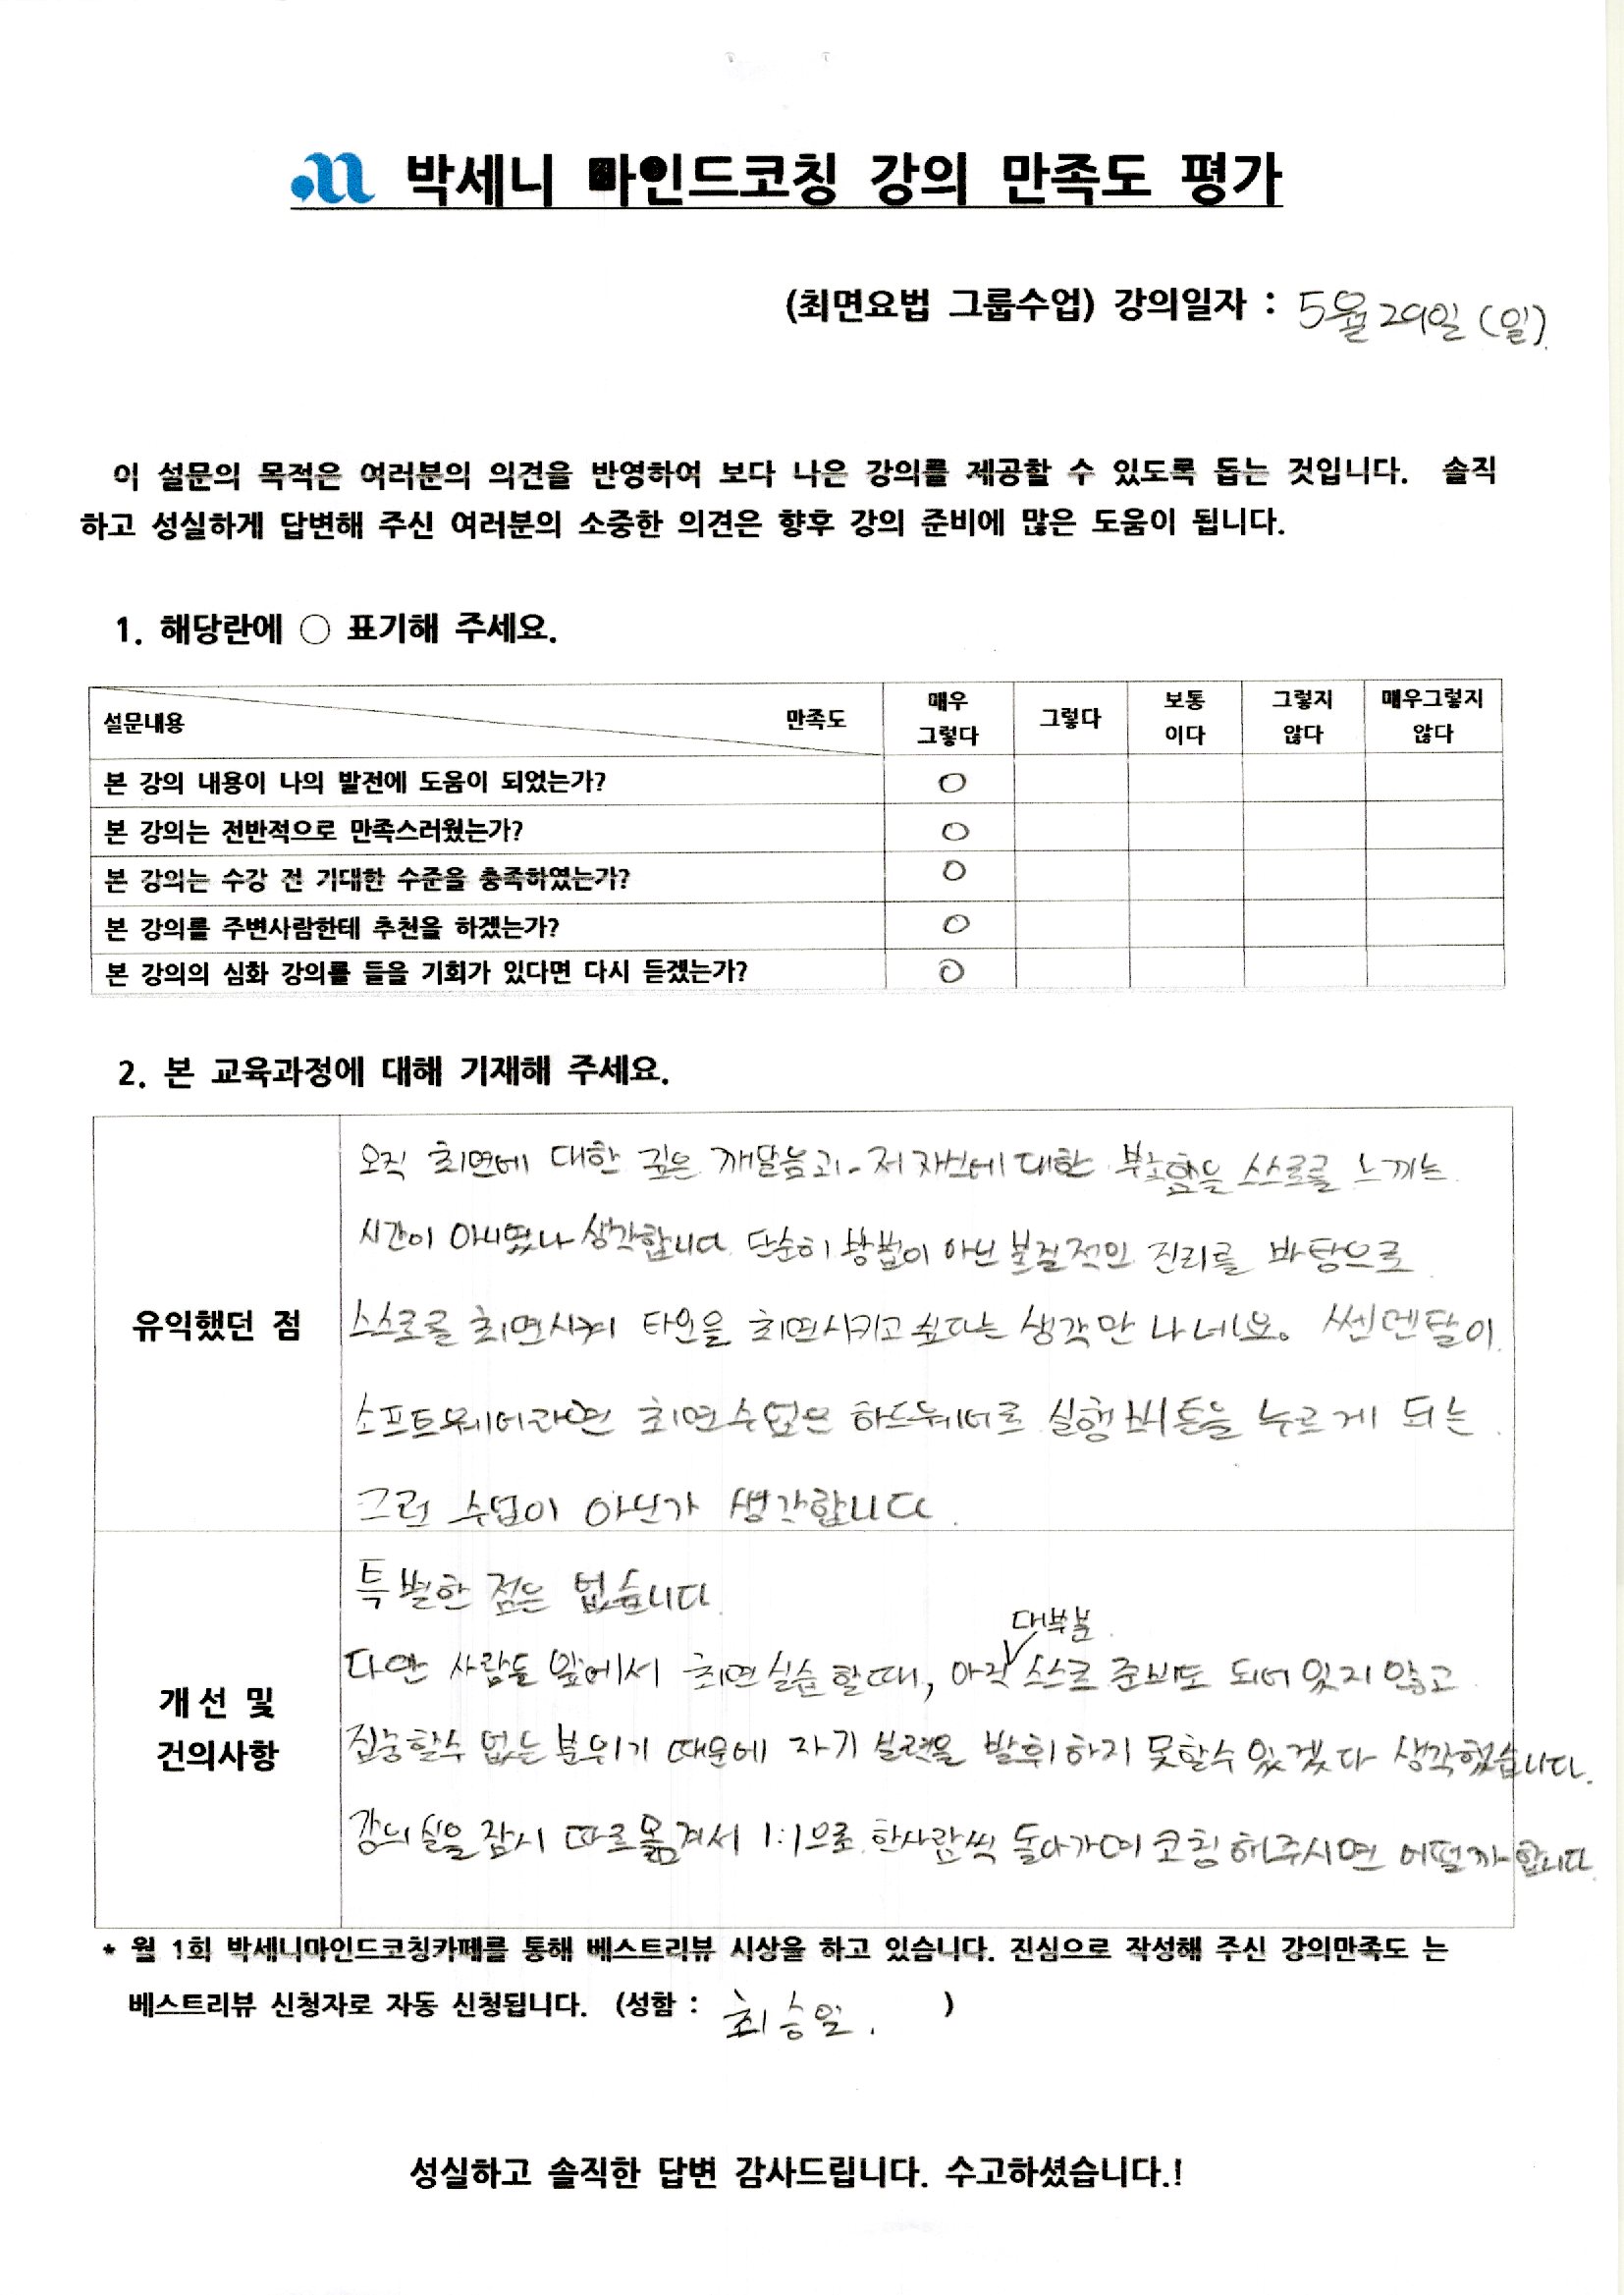 박세니 마인드코칭 강의 만족도 평가
(최면요법 그룹수업) 강의일자 : 5월 29일 (일).
이 설문의 목적은 여러분의 의견을 반영하여 보다 나은 강의를 제공할 수 있도록 돕는 것입니다. 솔직
하고 성실하게 답변해 주신 여러분의 소중한 의견은 향후 강의 준비에 많은 도움이 됩니다.
1. 해당란에 ○ 표기해 주세요.
설문내용 만족도 매우 그렇다 그렇다 보통 이다 그렇지 않다 매우그렇지 않다
본 강의 내용이 나의 발전에 도움이 되었는가? ○
본 강의는 전반적으로 만족스러웠는가? ○
본 강의는 수강 전 기대한 수준을 충족하였는가? ○
본 강의를 주변사람한테 추천을 하겠는가? ○
본 강의의 심화 강의를 들을 기회가 있다면 다시 듣겠는가? ○
2. 본 교육과정에 대해 기재해 주세요.
유익했던 점
오직 최면에 대한 깊은 깨달음과 저 자신에 대한 부족함을 스스로를 느끼는
시간이 아니였나 생각합니다. 단순히 방법이 아닌 본질적인 진리를 바탕으로
스스로를 최면시켜 타인을 최면시키고 싶다는 생각만 나네요. 쎈멘탈이
소프트웨어라면 최면수업은 하드웨어로 실행버튼을 누르게 되는
그런 수업이 아닌가 생각합니다.
개선 및
건의사항
특별한 점은 없습니다.
대부분
다만 사람들 앞에서 최면실습 할때, 아직 스스로 준비도 되어 있지 않고
집중할수 없는 분위기 때문에 자기 실력을 발휘하지 못할수 있겠다 생각했습니다.
강의실을 잠시 따로 옮겨서 1:1으로 한사람씩 돌아가며 코칭해주시면 어떨까 합니다.
* 월 1회 박세니마인드코칭카페를 통해 베스트리뷰 시상을 하고 있습니다. 진심으로 작성해 주신 강의만족도 는
베스트리뷰 신청자로 자동 신청됩니다. (성함 : 최승일. )
성실하고 솔직한 답변 감사드립니다. 수고하셨습니다.!